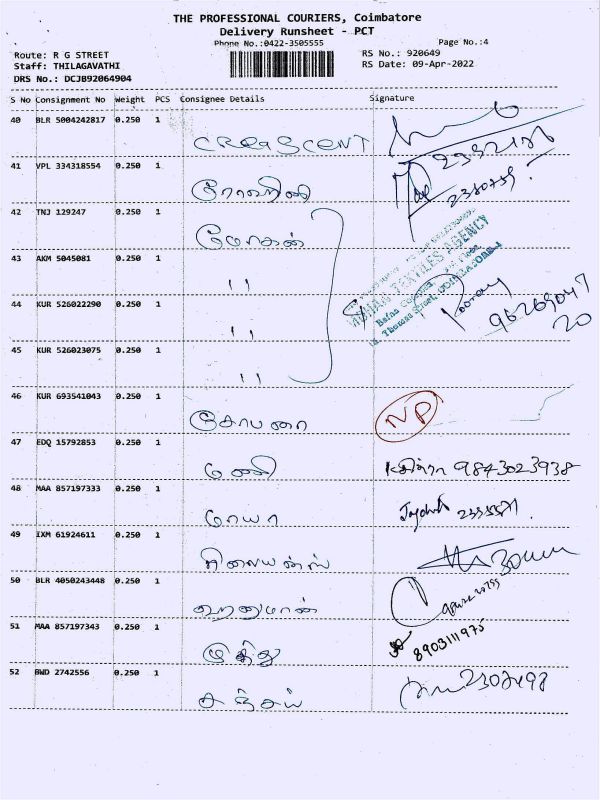 THE PROFESSIONAL COURIERS, Coimbatore
Delivery Runsheet - PCT
Phone No.:0422-3505555
Page No.:4
Route: R G STREET
RS No.: 920649
Staff: THILAGAVATHI
RS Date: 09-Apr-2022
DRS No.: DCJB92064904
S No Consignment No Weight PCS Consignee Details Signature
40 BLR 5004242817 0.250 1
CREASCENT
2392178
41 VPL 334318554 0.250 1
2380759
42 TNJ 129247 0.250 1
மோகன்
43 AKM 5045081 0.250 1
" "
MOHAN TEXTILES AGENCY
44 KUR 526022290 0.250 1
" "
96269047
20
45 KUR 526023075 0.250 1
" "
46 KUR 693541043 0.250 1
சோபனா
NP
47 EDQ 15792853 0.250 1
மணி
9843023938
48 MAA 857197333 0.250 1
மாயா
49 IXM 61924611 0.250 1
ரிலையன்ஸ்
50 BLR 4050243448 0.250 1
ஹனுமான்
51 MAA 857197343 0.250 1
முத்து
8903111975
52 BWD 2742556 0.250 1
சஞ்சய்